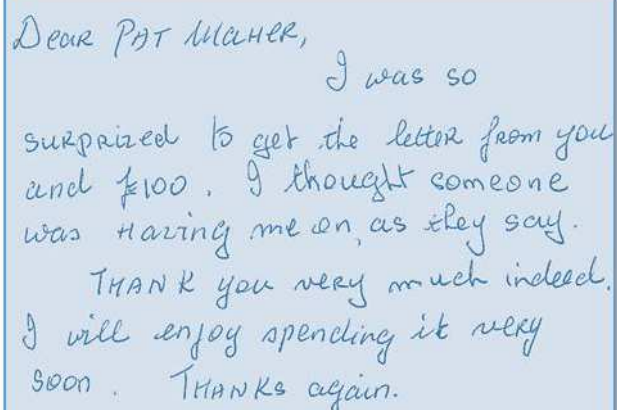 Dear PAT MaHER,
I was so
surprized to get the letter from you
and £100. I thought someone
was Having me on, as they say.
THANK you very much indeed.
I will enjoy spending it very
soon. THANKS again.